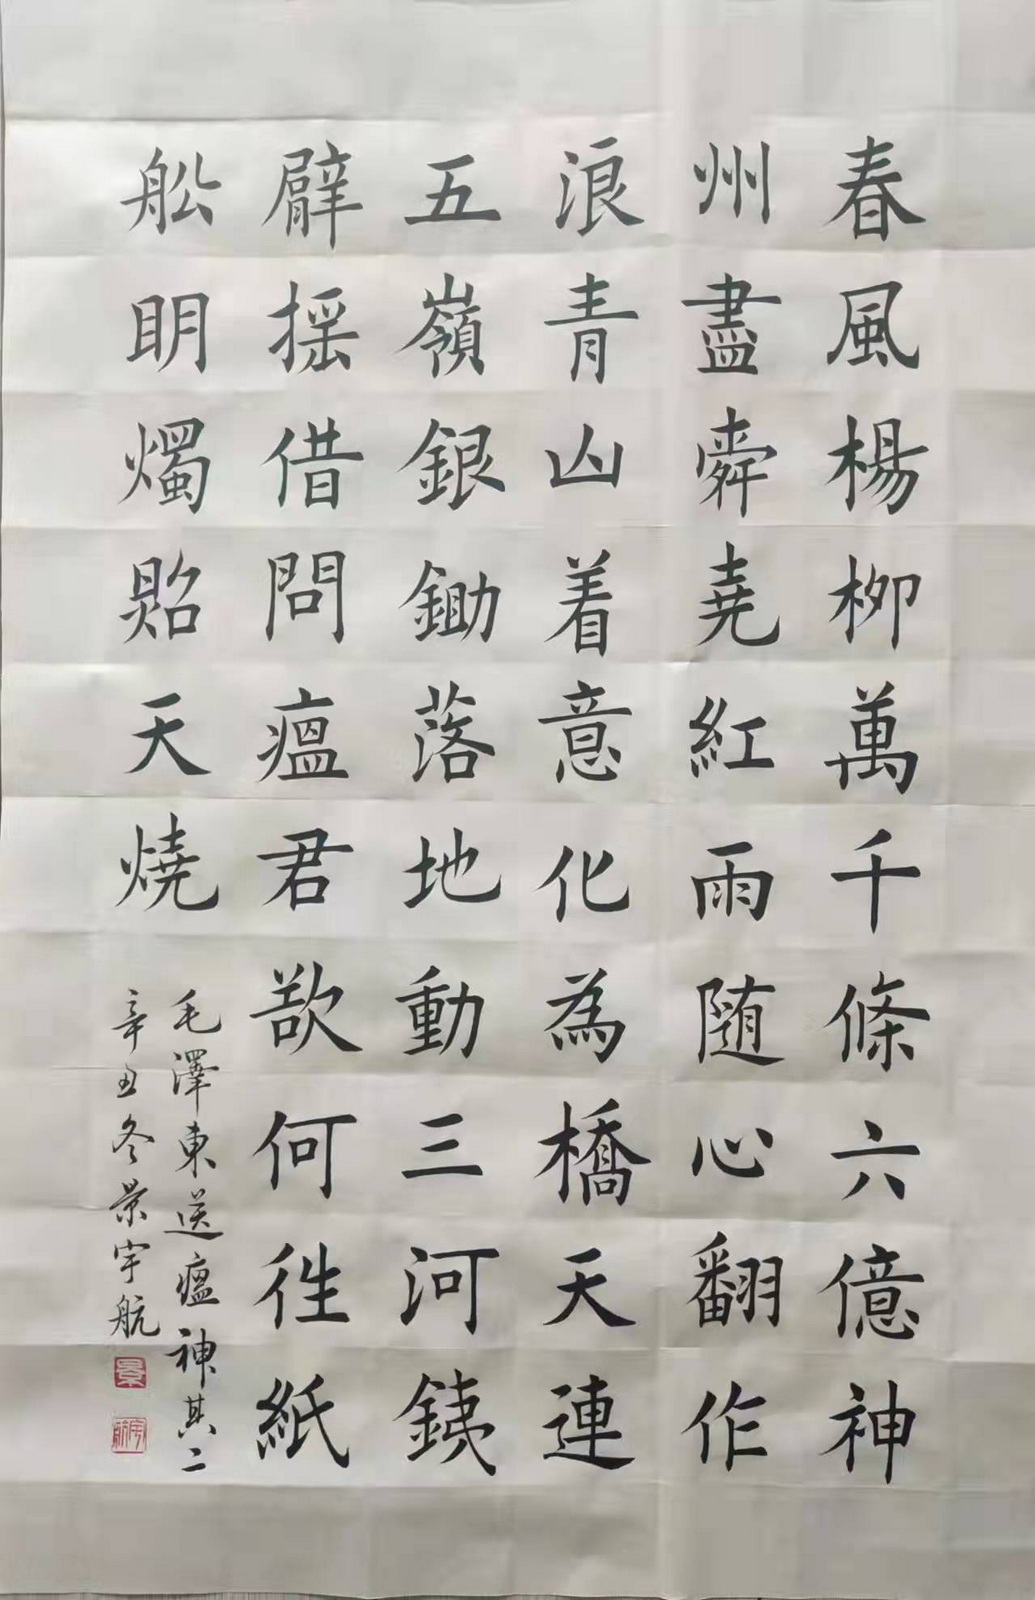 春風楊栁萬千條六億神
州盡舜堯紅雨随心翻作
浪青山着意化為橋天連
五嶺銀鋤落地動三河銕
臂揺借問瘟君欲何徃紙
船明燭照天燒
毛澤東送瘟神其二
辛丑冬景宇航
景
宇航